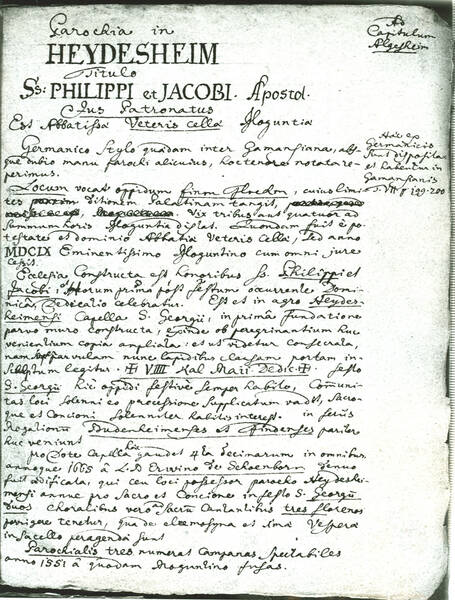 Parochia in
HEYDESHEIM
Titulo
Ss: PHILIPPI et JACOBI. Apostol.
Jus Patronatus
Est Abbatissa Veteris cellæ Moguntiæ
Ad
Capitulum
Algesheim
Germanico Stylo quædam inter Gamansiana, abs
que dubio manu parochi alicuius, hoc tenore notata re
perimus.
Hæc ex
Germanicis
sunt disposita
et habentur in
Gamansianis
199-200
Locum vocat oppidum cuius limi
tes ditionem Palatinam tangit,
Vix tribus aut quatuor ad
summum horis Moguntia distat. Quondam fuit è po
testate et dominio Abbatiæ Veteris cellæ, sed anno
MDCIX Eminentissimo Moguntino cum omni jure
cessit.
Ecclesia Constructa est honoribus Ss. Philippi et
Jacobi. Horum primo post festum occurrente Domi
nica, Dedicatio celebratur. Est et in agro Heydes
heimensi Capella S. Georgii, in prima fundatione
parvo muro constructa, exinde ob peregrinantium huc
venientium copia ampliata: et ut videtur consecrata,
nam parvulam nunc lapidibus clausam portam in
legitur. ✠ VIIII Kal Maii Dedic ✠. festo
S. Georgii hic oppidi festivè semper habito, Communi
tas loci solenni cc processione supplicatum vadit, Sacro
que et Concioni solenniter habitis interest. in festis
Rogationum Budenheimenses et Findenses pariter
huc veniunt
pro Dote Capella hæc gaudet 4ta decimarum in omnibus,
annoque 1665 à L.B. Erwino de Schoenborn denuo
fuit ædificata, qui ceu loci possessor parocho Heydeshei
mensi annue pro Sacro et Concione in festo S. Georgii
duos Choralibus vero Sacrum Cantantibus tres florenos
porrigere tenetur, qua de eleemosyna et primæ Vesperæ
in sacello peragendæ sunt
Parochialis tres numerat Campanas spectabiles
anno 1551 à quodam Moguntino fusas.